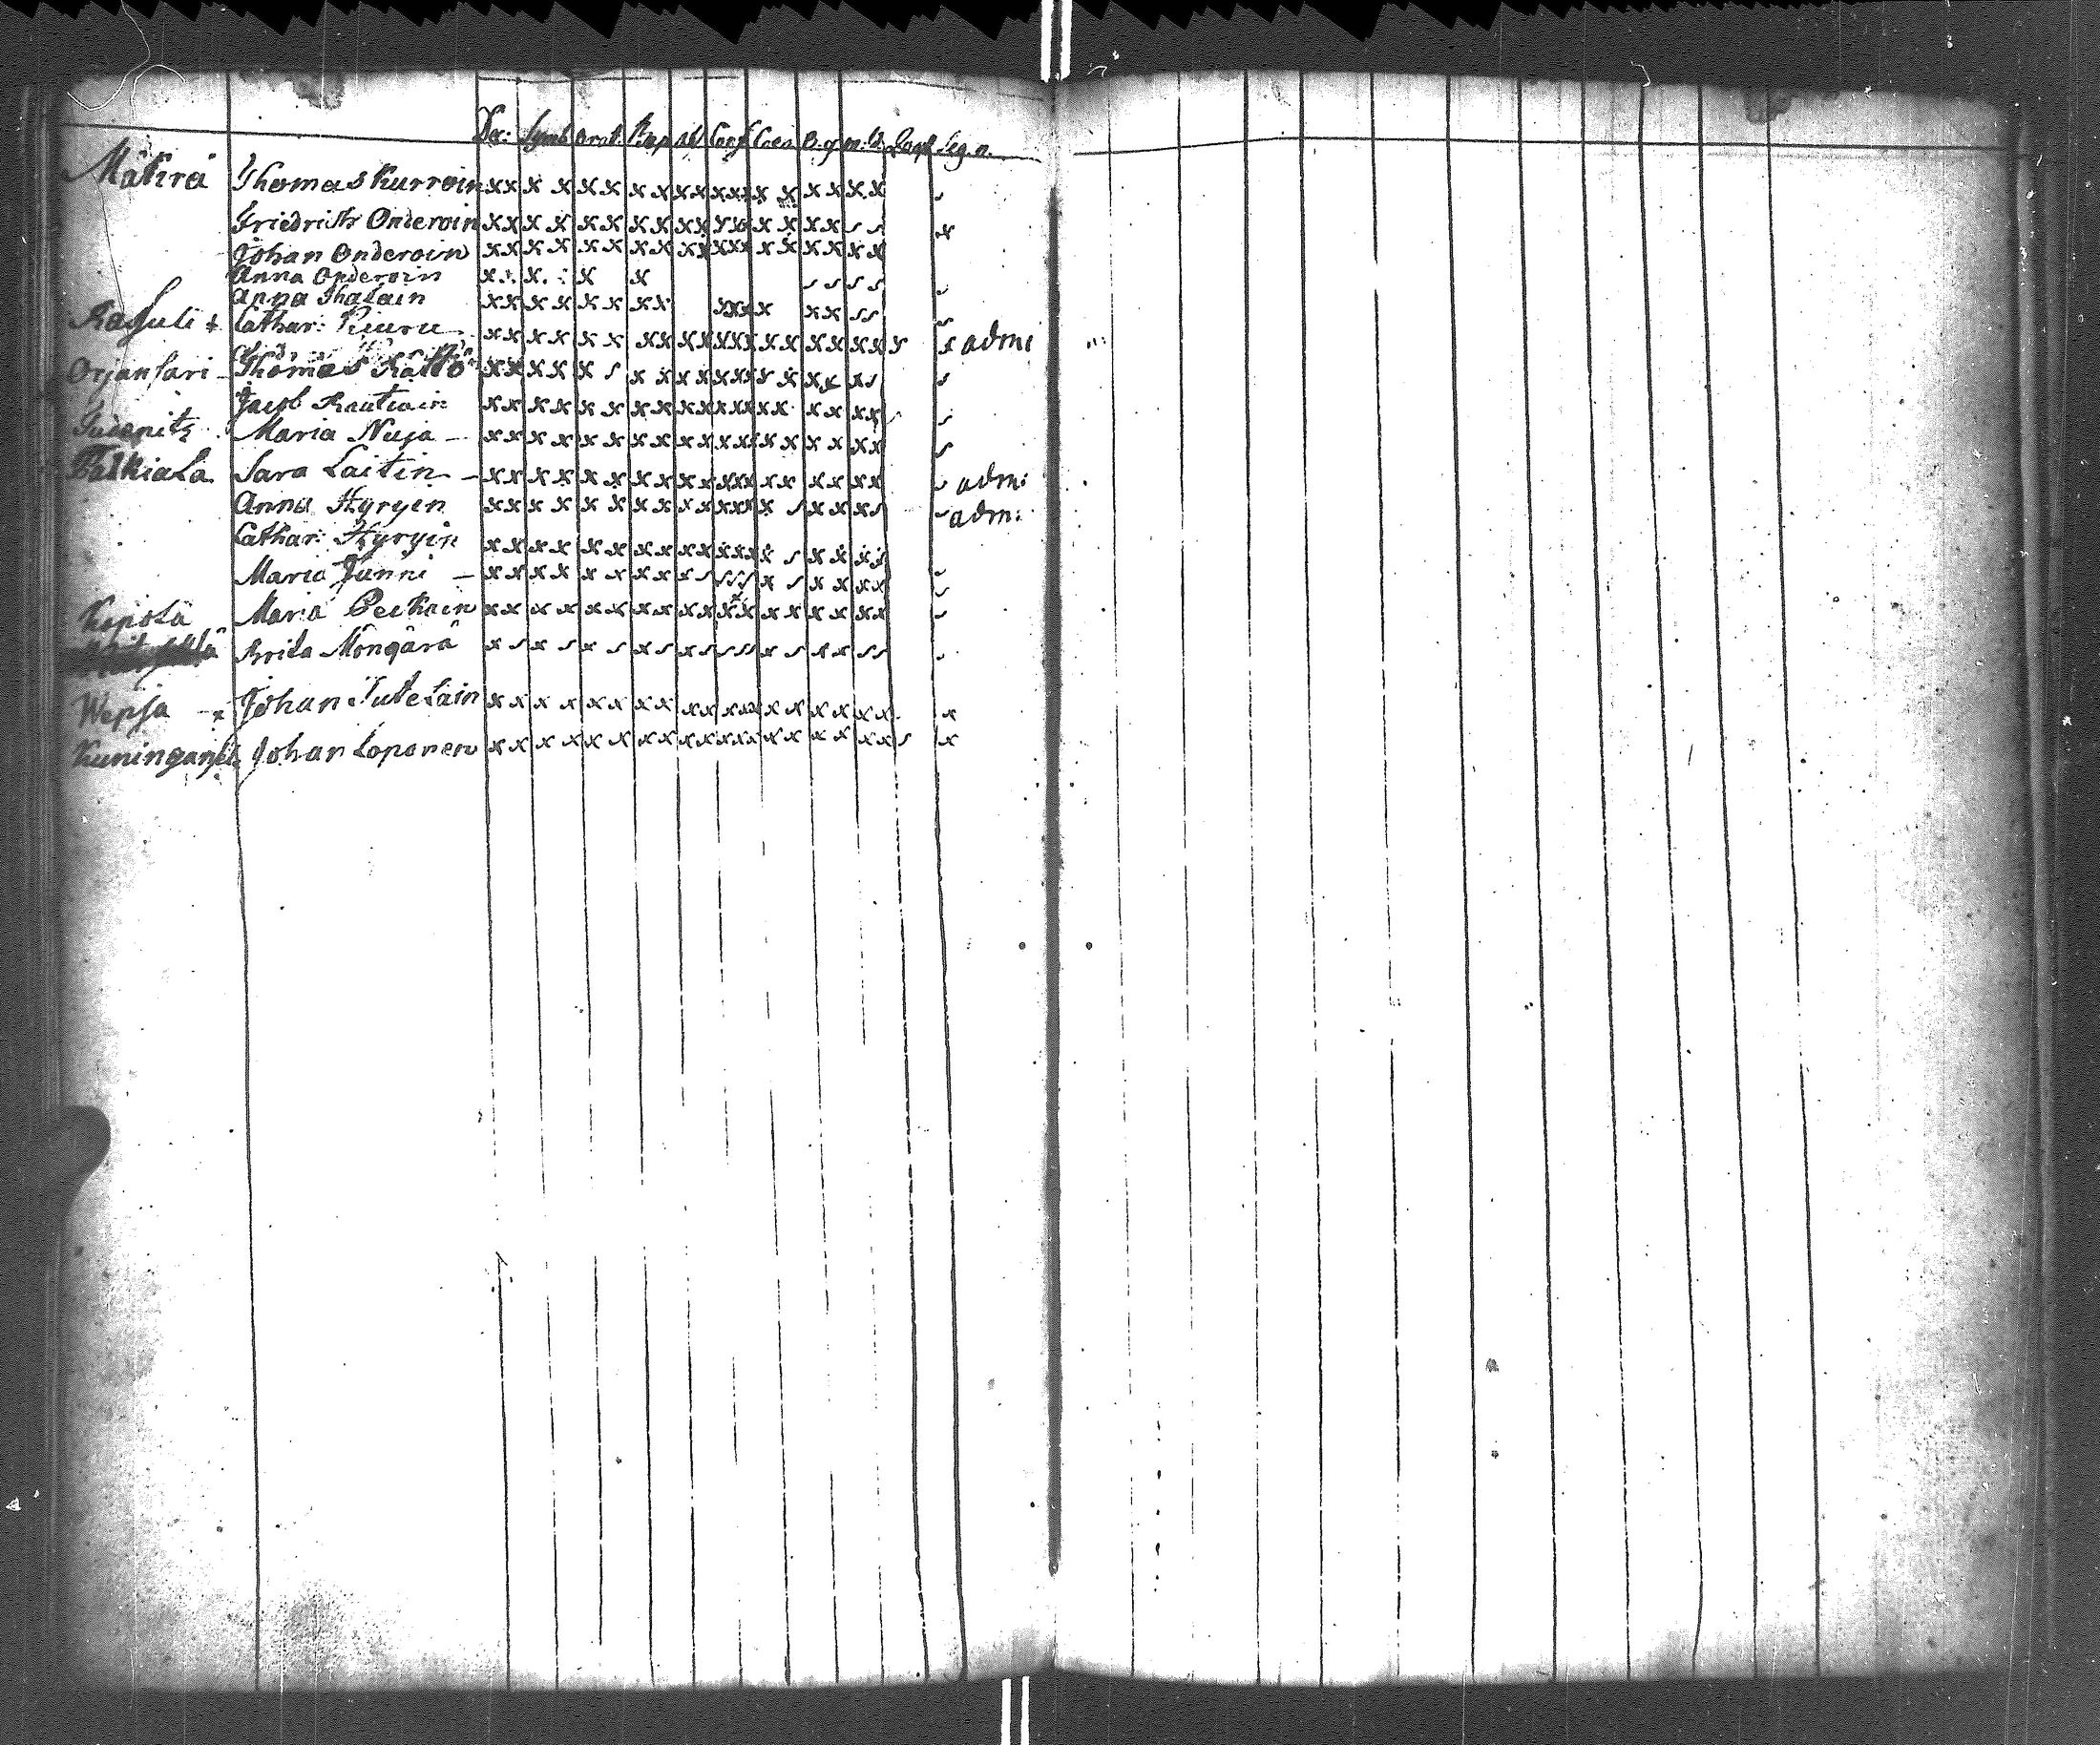 Dec: Symb orat. Bap Abs Conf Coen B.g m. &. Quest Seg. n.
Mätirä Thomas Kurroin xx xx xx xx xx xxx x x xx xx
Friedrich Onderoin xx xx xx xx xx xxx xx xx ss x
Johan Onderoin xx xx xx xx xx xxx xx xx xx
Anna Onderoin x x x x s s s s
Anna Ihalain xx xx xx xx xxx x xx ss
Raguli + Cathar: Kiuru xx xx xx xx xx xxx xx xx xx x x admi
Orjansari Thomas Kättö xx xx x s xx xx xxx xx xx xs s
Jacob Rautiain xx xx xx xx xx xxx xx xx xx s
Maria Nuja – xx xx xx xx xx xxx xx xx xx s
Palkiala Sara Laitin – xx xx xx xx xx xxx xx xx xx adm:
Anna Hyryen xx xx xx xx xx xxx x s xx xs adm:
Cathar: Hyryin xx xx xx xx xx xxx x s xx xx
Maria Junni – xx xx xx xx x s sss x s xx xx
Kopola Maria Peckoin xx xx xx xx xx xx xx xx xx
Brita Möngärä x s x s x s x s x s sss x s xx ss
Wepsa – x Johan Jutelain xx xx xx xx xx xxx xx xx xx x
Johan Loponen xx xx xx xx xx xxx xx xx xx s x